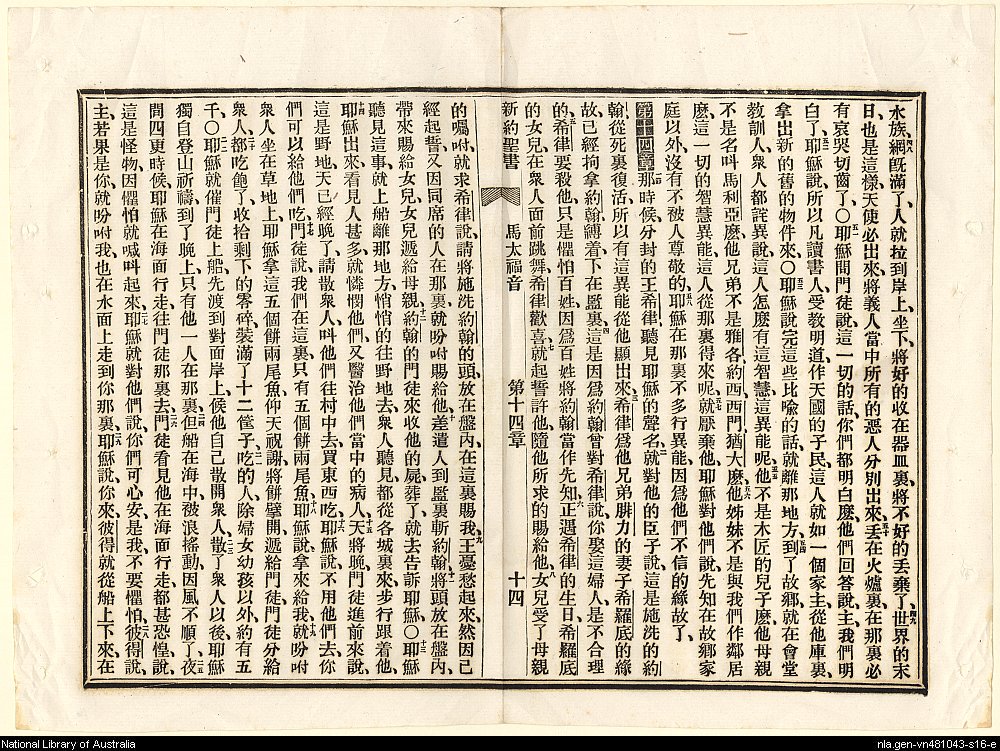 水族、四八網既滿了、人就拉到岸上、坐下、將好的收在器皿裏、將不好的丟棄了、四九世界的末
日、也是這樣、天使必出來、將義人當中所有的惡人分別出來、五十丟在火爐裏、在那裏必
有哀哭切齒了、〇五一耶穌問門徒說、這一切的話、你們都明白麽、他們回答說、主、我們明
白了、五二耶穌說、所以凡讀書人受教明道、作天國的子民、這人就如一個家主、從他庫裏、
拿出新的舊的物件來、〇五三耶穌說完這些比喻的話、就離那地方、五四到了故鄉、就在會堂
教訓人、衆人都詫異說、這人怎麽有這智慧、這異能呢、五五他不是木匠的兒子麽、他母親
不是名叫馬利亞麽、他兄弟不是雅各約西西門猶大麽、五六他姊妹不是與我們作鄰居
麽、這一切的智慧異能、這人從那裏得來呢、五七就厭棄他、耶穌對他們說、先知在故鄉家
庭以外、沒有不被人尊敬的、五八耶穌在那裏不多行異能、因爲他們不信的緣故了、
第十四章 一那時候分封的王希律、聽見耶穌的聲名、二就對他的臣子說、這是施洗的約
翰、從死裏復活、所以有這異能從他顯出來、三希律爲他兄弟腓力的妻子希羅底的緣
故、已經拘拿約翰、縛着下在監裏、四這是因爲約翰曾對希律說、你娶這婦人、是不合理
的、五希律要殺他、只是懼怕百姓、因爲百姓將約翰當作先知、六正遇希律的生日、希羅底
的女兒在衆人面前跳舞、希律歡喜、七就起誓許他、隨他所求的賜給他、八女兒受了母親
新約聖書 馬太福音 第十四章 十四
的囑咐、就求希律說、請將施洗約翰的頭、放在盤內、在這裏賜我、九王憂愁起來、然因已
經起誓、又因同席的人在那裏、就吩咐賜給他、十差遣人到監裏、斬約翰、十一將頭放在盤內、
帶來賜給女兒、女兒遞給母親、十二約翰的門徒來、收他的屍葬了、就去告訴耶穌、〇十三耶穌
聽見這事、就上船離那地方、悄悄的往野地去、衆人聽見、都從各城裏來、步行跟着他、
十四耶穌出來、看見人甚多、就憐憫他們、又醫治他們當中的病人、十五天將晚、門徒進前來說、
這是野地、天已經晚了、請散衆人、叫他們往村中去、買東西吃、十六耶穌說、不用他們去、你
們可以給他們吃、十七門徒說、我們在這裏、只有五個餅、兩尾魚、十八耶穌說、拿來給我、十九就吩咐
衆人坐在草地上、耶穌拿這五個餅兩尾魚、仰天祝謝、將餅擘開、遞給門徒、門徒分給
衆人、二十都吃飽了、收拾剩下的零碎、裝滿了十二筐子、二一吃的人、除婦女幼孩以外、約有五
千、〇二二耶穌就催門徒上船、先渡到對面岸上、候他自己散開衆人、二三散了衆人以後、耶穌
獨自登山祈禱、到了晚上、只有他一人在那裏、二四但船在海中、被浪搖動、因風不順了、二五夜
間四更時候、耶穌在海面行走、往門徒那裏去、二六門徒看見他在海面行走、都甚恐惶、說、
這是怪物、因懼怕就喊叫起來、二七耶穌就對他們說、你們可心安、是我、不要懼怕、二八彼得說、
主、若果是你、就吩咐我也在水面上走到你那裏、二九耶穌說、你來、彼得就從船上下來、在
National Library of Australia
nla.gen-vn481043-s16-e